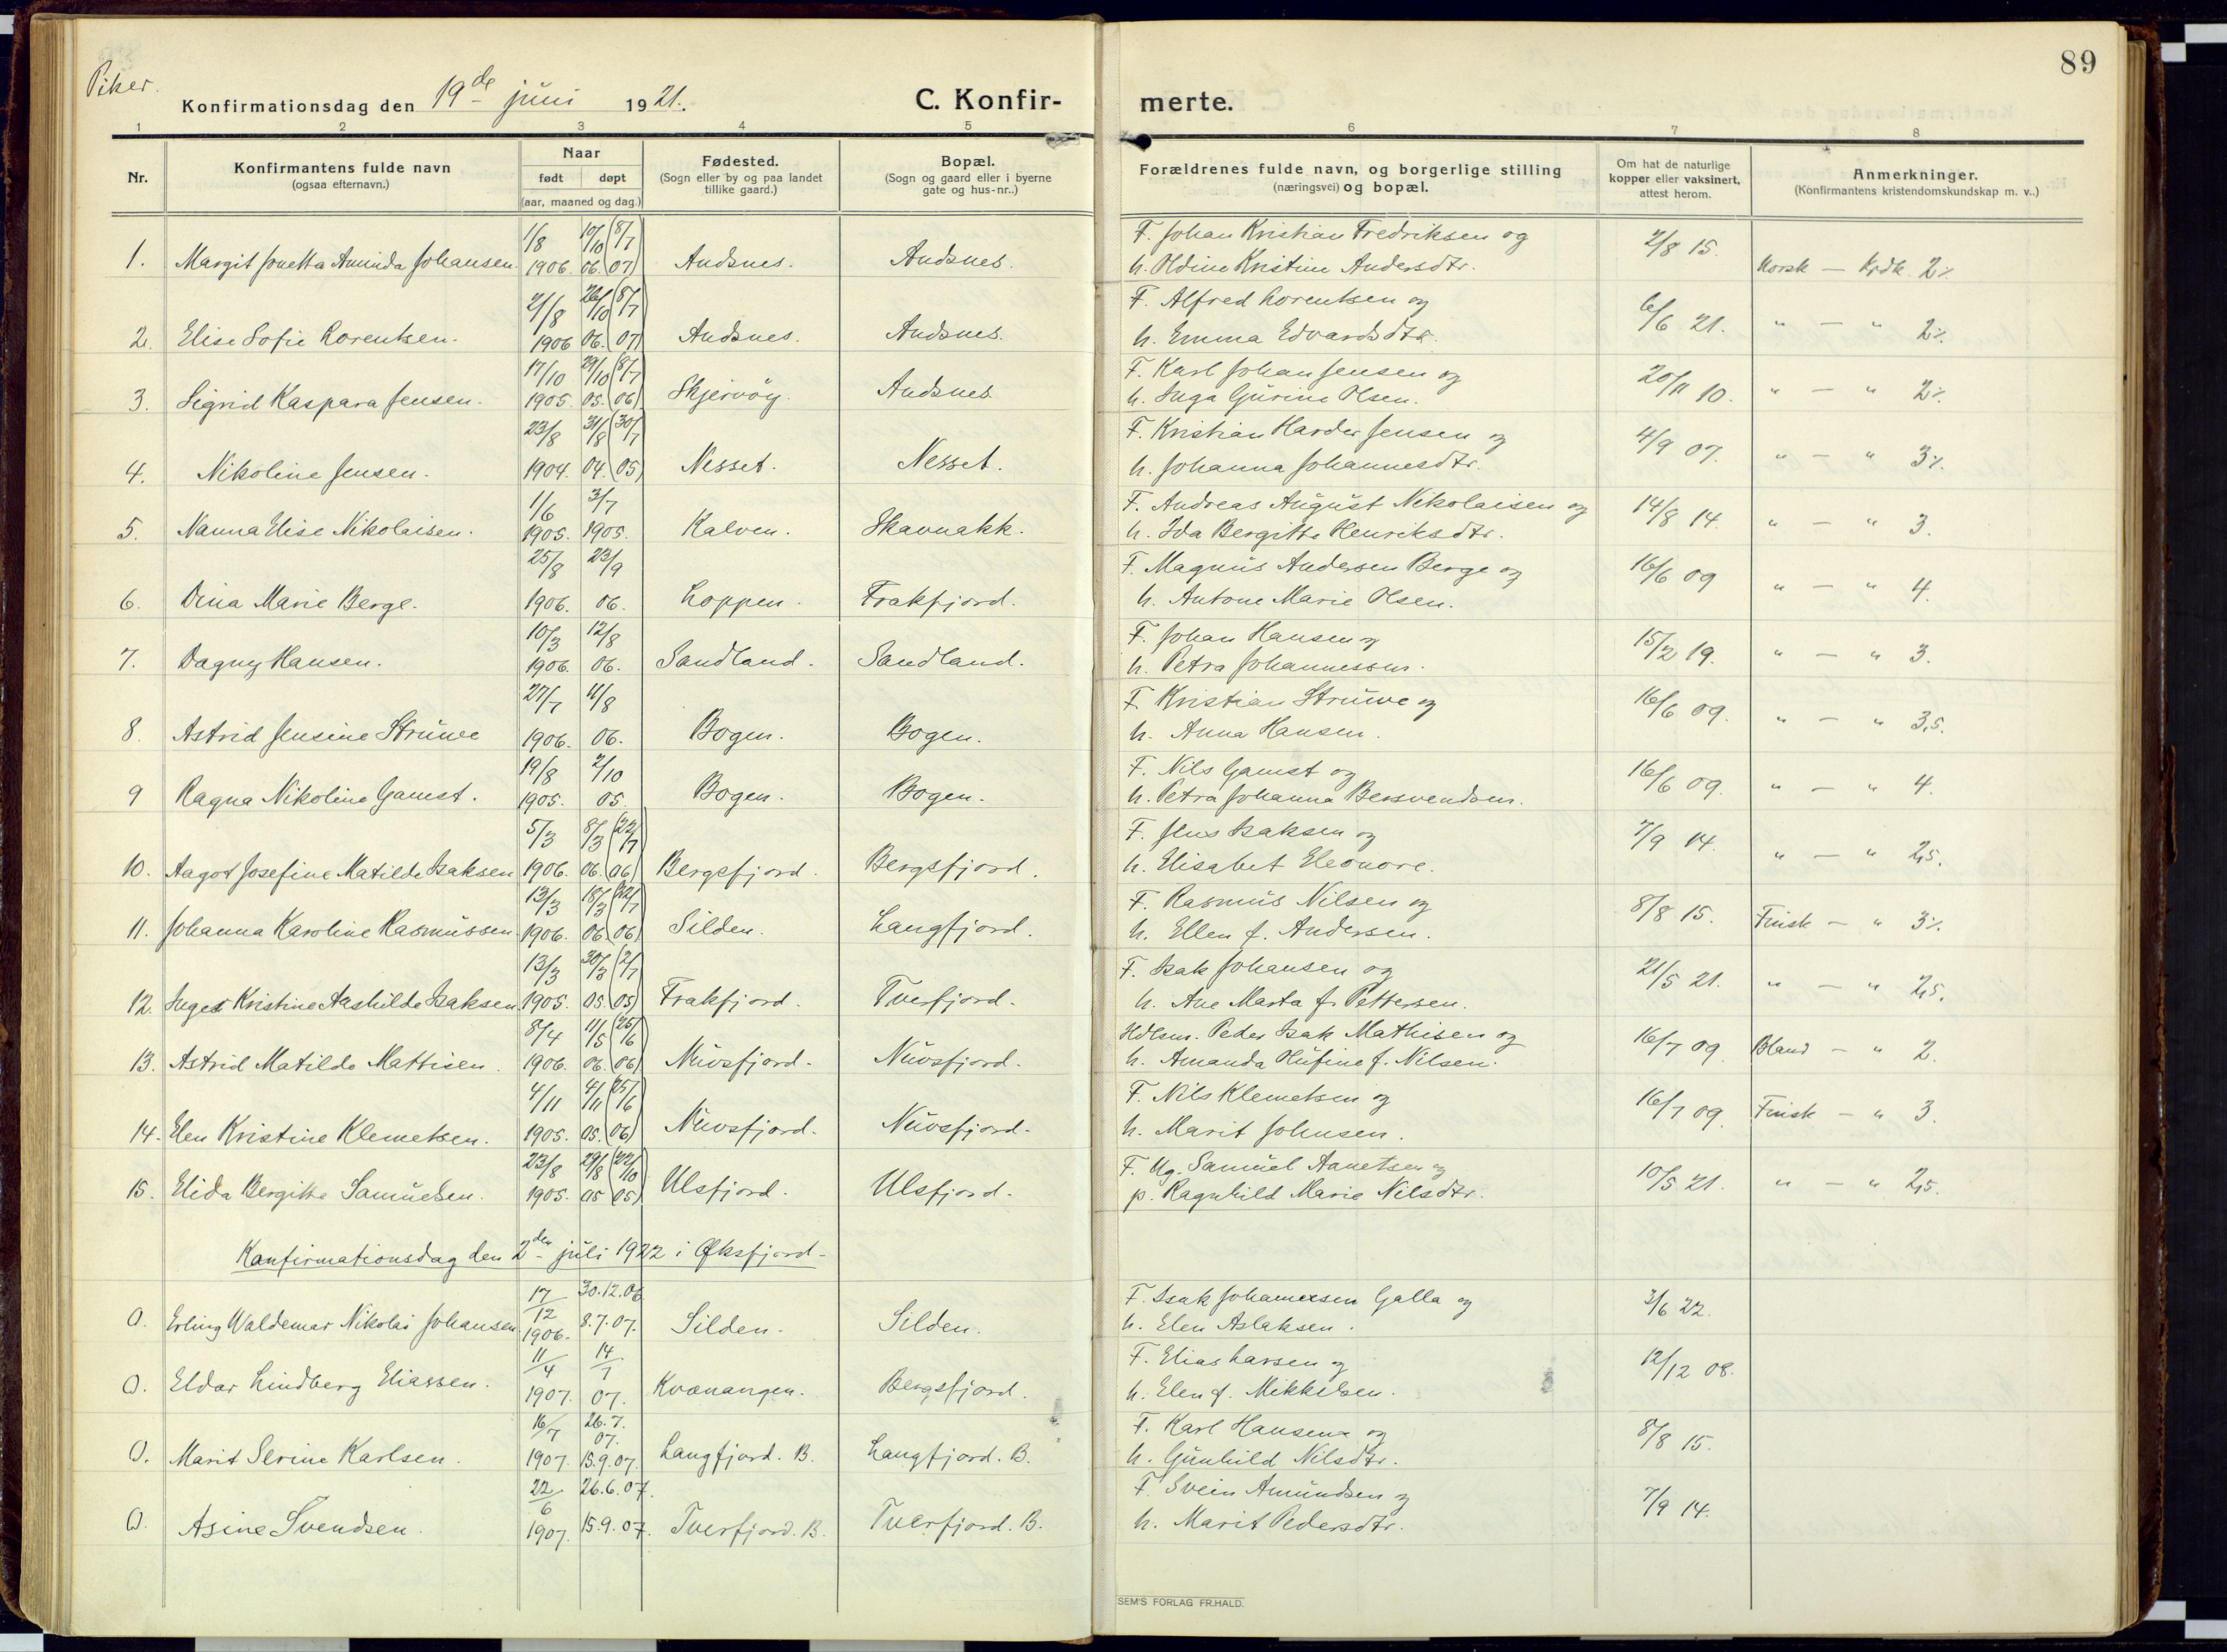 89
Piker.
Konfirmationsdag den 19de juni 1921. C. Konfir-merte.
1 2 3 4 5 6 7 8
Nr. Konfirmantens fulde navn (ogsaa efternavn.) Naar født døpt (aar, maaned og dag.) Fødested. (Sogn eller by og paa landet tillike gaard.) Bopæl. (Sogn og gaard eller i byerne gate og hus-nr..) Forældrenes fulde navn, og borgerlige stilling (næringsvei) og bopæl. Om hat de naturlige kopper eller vaksinert, attest herom. Anmerkninger. (Konfirmantens kristendomskundskap m. v..)
1/8 10/10 (8/7 F. Johan Kristian Fredriksen og 2/8 15.
1. Margit Jonetta Aminda Johansen. 1906. 06. 07) Andsnes. Andsnes. h. Oldine Kristine Andersdtr. Norsk — Krdk. 2%
2/8 26/10 (8/7 F. Alfred Lorentsen og 6/6 21.
2. Elise Sofie Lorentsen. 1906 06. 07) Andsnes. Andsnes. h. Emma Edvardsdtr. " — " 2%
17/10 29/10 (8/7 F. Karl Johan Jensen og 20/11 10.
3. Sigrid Kaspara Jensen. 1905. 05. 06) Skjervöy. Andsnes. h. Inga Gurine Olsen. " — " 2%
23/8 31/8 (30/7 F. Kristian Harder Jensen og 4/9 07.
4. Nikoline Jensen. 1904. 04. 05) Nesset. Nesset. h. Johanna Johannesdtr. " — " 3%
1/6 3/7 F. Andreas August Nikolaisen og 14/8 14.
5. Nanna Elise Nikolaisen. 1905. 1905. Kalven. Skavnakk. h. Ida Bergitte Henriksdtr. " — " 3.
25/8 23/9 F. Magnus Andersen Berge og 16/6 09
6. Dina Marie Berge. 1906. 06. Loppen. Frakfjord. h. Antone Marie Olsen. " — " 4.
10/3 12/8 F. Johan Hansen og 15/2 19.
7. Dagny Hansen. 1906. 06. Sandland. Sandland. h. Petra Johannessen. " — " 3.
27/7 11/8 F. Kristian Struwe og 16/6 09.
8. Astrid Jensine Struwe 1906. 06. Bogen. Bogen. h. Anna Hansen. " — " 3,5.
19/8 2/10 F. Nils Gamst og 16/6 09.
9 Ragna Nikoline Gamst. 1905. 05. Bogen. Bogen. h. Petra Johanna Bersvendsen. " — " 4.
5/3 8/3 (22/7 F. Jens Isaksen og 7/9 14.
10. Aagot Josefine Matilde Isaksen 1906. 06. 06) Bergsfjord. Bergsfjord. h. Elisabet Eleonore. " — " 2,5.
13/3 18/3 (22/7 F. Rasmus Nilsen og 8/8 15.
11. Johanna Karoline Rasmussen. 1906. 06. 06) Silden. Langfjord. h. Ellen f. Andersen. Finsk — " 3%
13/3 30/3 (2/7 F. Isak Johansen og 21/5 21.
12. Inger Kristine Aashilde Isaksen. 1905. 05. 05) Frakfjord. Tverfjord. h. Ane Marta f. Pettersen. " — " 2,5.
8/4 11/5 (25/6 Hdlsm. Peder Isak Mathisen og 16/7 09.
13. Astrid Matilde Mattisen. 1906. 06. 06) Nuvsfjord. Nuvsfjord. h. Amanda Olufine f. Nilsen. Bland — " 2.
4/11 4/11 (25/6 F. Nils Klemetsen og 16/7 09.
14. Elen Kristine Klemetsen. 1905. 05. 06) Nuvsfjord. Nuvsfjord. h. Marit Johnsen. Finsk — " 3.
23/8 29/8 (22/10 F. Ug. Samuel Aanetsen og 10/5 21.
15. Elida Bergitte Samuelsen. 1905. 05 05) Ulsfjord. Ulsfjord. p. Ragnhild Marie Nilsdtr. " — " 2,5.
Konfirmationsdag den 2den juli 1922 i Öksfjord
17/12 30.12.06 F. Isak Johannesen Galla og 3/6 22.
O. Erling Waldemar Nikolai Johansen 1906. 8.7.07. Silden. Silden. h. Elen Aslaksen.
11/4 14/7 F. Elias Larsen og 12/12 08.
O. Eldar Lindberg Eliassen. 1907. 07. Kvænangen. Bergsfjord. h. Elen f. Mikkelsen.
16/7 26.7.07. F. Karl Hansen og 8/8 15.
O. Marit Serine Karlsen. 1907. 15.9.07. Langfjord. B. Langfjord. B. h. Gunhild Nilsdtr.
22/6 26.6.07. F. Svein Amundsen og 7/9 14.
O. Asine Svendsen. 1907. 15.9.07. Tverfjord. B. Tverfjord. B. h. Marit Pedersdtr.
SEM'S FORLAG FR.HALD.